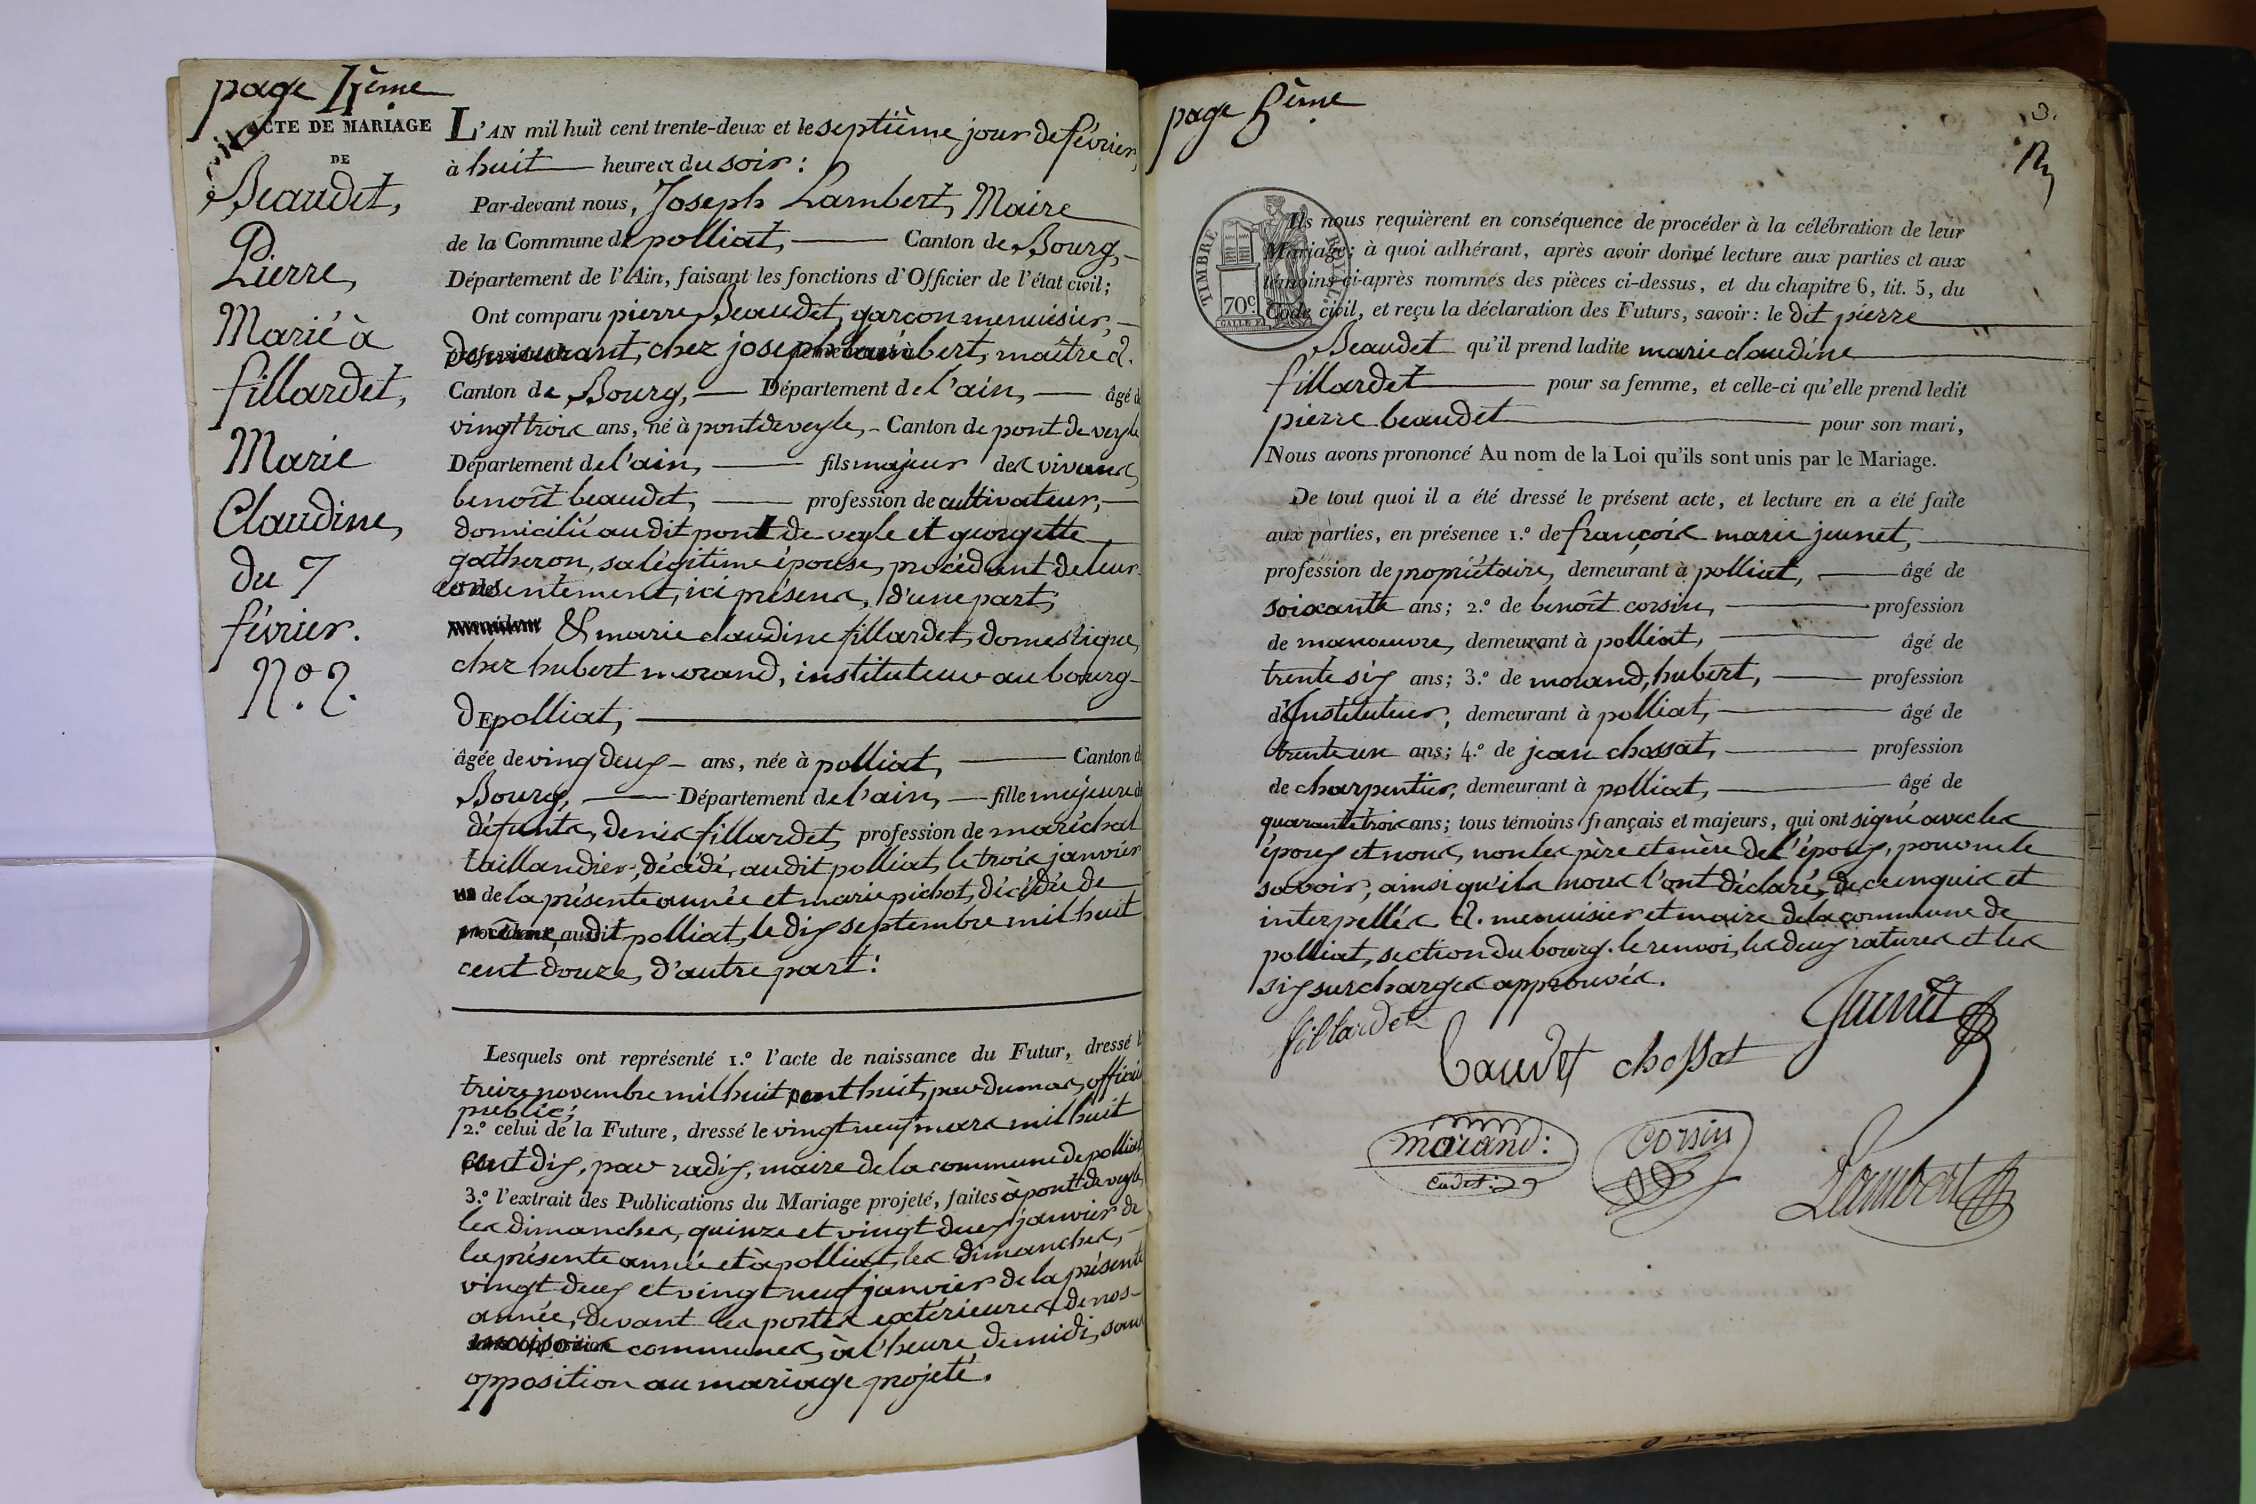 page 4ème
ACTE DE MARIAGE
DE
Beaudet,
Pierre,
Marié à
fillardet,
Marie
Claudine,
du 7
février.
N.o 2.
L'AN mil huit cent trente-deux et le septième jour de février,
à huit heures du soir :
Par-devant nous, Joseph Lambert, Maire
de la Commune de polliat, Canton de Bourg,
Département de l'Ain, faisant les fonctions d'Officier de l'état civil ;
Ont comparu pierre Beaudet, garçon menuisier,
demeurant, chez joseph lambert, maître
Canton de Bourg, Département de l'ain, âgé d
vingt trois ans, né à pont de veyle, Canton de pont de veyle
Département de l'ain, fils majeur des vivans
benoît beaudet, profession de cultivateur,
domicilié audit pont de veyle et georgette
gatheron, sa légitime épouse, procédant de leur
consentement, ici présens, d'une part;
& marie claudine fillardet, domestique
chez hubert morand, instituteur au bourg
DE polliat,
âgée de vingt deux ans, née à polliat, Canton d
Bourg, Département de l'ain, fille majeure de
défunts, denis fillardet, profession de maréchal
taillandier, décédé, audit polliat, le trois janvier
de la présente année et marie pichot, décédée de
même, audit polliat, le dix septembre mil huit
cent douze, d'autre part :
Lesquels ont représenté 1.º l'acte de naissance du Futur, dressé l
treize novembre mil huit cent huit, par dumas, officier
public;
2.º celui de la Future, dressé le vingt neuf mars mil huit
cent dix, par radix, maire de la commune de polliat
3.º l'extrait des Publications du Mariage projeté, faites à pont de veyle,
les dimanches, quinze et vingt deux janvier de
la présente année et à polliat, les dimanches,
vingt deux et vingt neuf janvier de la présente
année, devant les portes extérieures de nos
maisons communes, à l'heure de midi, sans
opposition au mariage projeté.
page 5ème
3.
TIMBRE ROYAL
70c.
Ils nous requièrent en conséquence de procéder à la célébration de leur
Mariage ; à quoi adhérant, après avoir donné lecture aux parties et aux
témoins ci-après nommés des pièces ci-dessus, et du chapitre 6, tit. 5, du
Code civil, et reçu la déclaration des Futurs, savoir : le dit pierre
Beaudet qu'il prend ladite marie claudine
fillardet pour sa femme, et celle-ci qu'elle prend ledit
pierre beaudet pour son mari,
Nous avons prononcé Au nom de la Loi qu'ils sont unis par le Mariage.
De tout quoi il a été dressé le présent acte, et lecture en a été faite
aux parties, en présence 1.º de françois marie jeunet,
profession de propriétaire, demeurant à polliat, âgé de
soixante ans ; 2.º de benoît corsin, profession
de manoeuvre, demeurant à polliat, âgé de
trente six ans ; 3.º de morand, hubert, profession
d'instituteur, demeurant à polliat, âgé de
trente un ans ; 4.º de jean chossat, profession
de charpentier, demeurant à polliat, âgé de
quarante trois ans ; tous témoins français et majeurs, qui ont signé avec les
époux et nous, non les père et mère de l'époux, pour ne le
savoir, ainsi qu'ils nous l'ont déclaré, de ce enquis et
interpellés. menuisier et maire de la commune de
polliat, section du bourg. le renvoi, les deux ratures et les
six surcharges approuvés.
fillardet
baudet chossat Jeunet
morand :
cadet :
corsin
Lambert